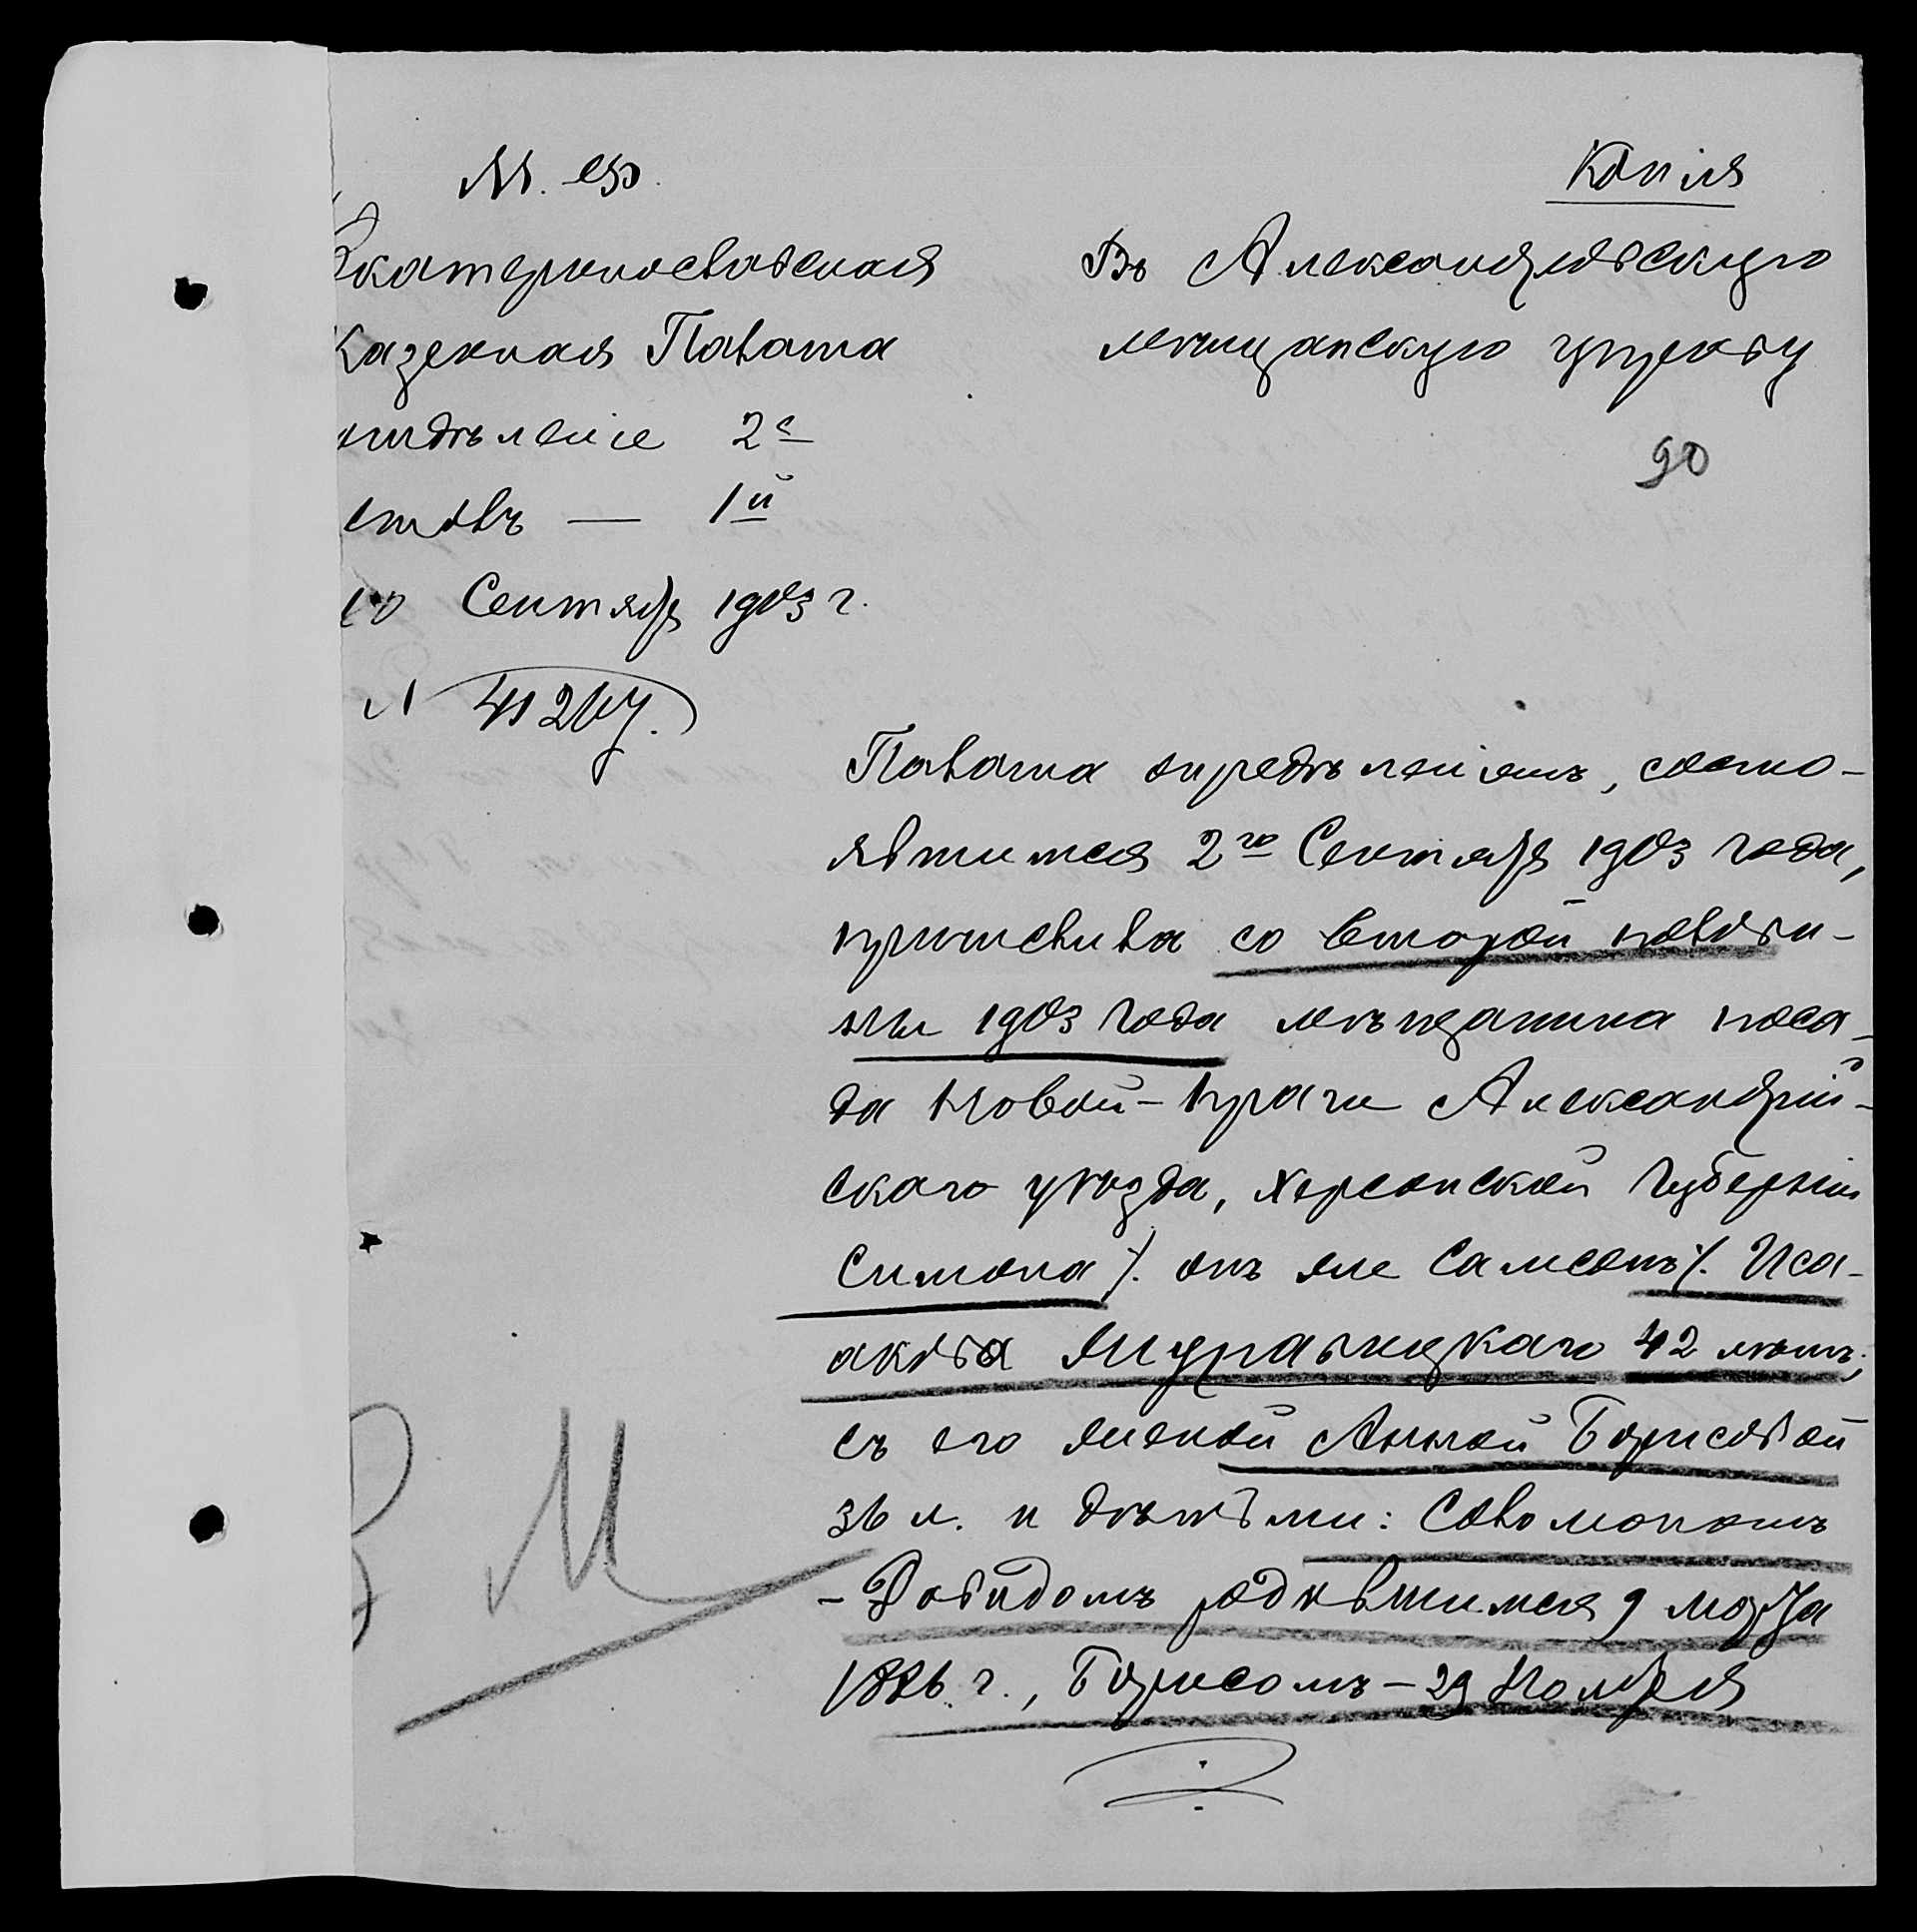 М. Ф.
Копія
Екатеринославская
Казенная Палата
отдѣленіе 2е
столъ — 1й
10 Сентября 1903 г.
№ 41267.
Въ Александровскую
мѣщанскую управу
90
Палата опредѣленіемъ, состо-
явшимся 2го Сентября 1903 года,
причислила со второй полови-
ны 1903 года мѣщанина поса-
да Новой-Праги Александрій-
скаго уѣзда, Херсонской губерніи
Симона /. онъ же Самсонъ /. Иса-
акова 42 лѣтъ;
съ его женой Анной Борисовой
36 л. и дѣтьми: Соломономъ
-Давидомъ родившимся 9 марта
1886 г., Борисомъ - 29 Ноября